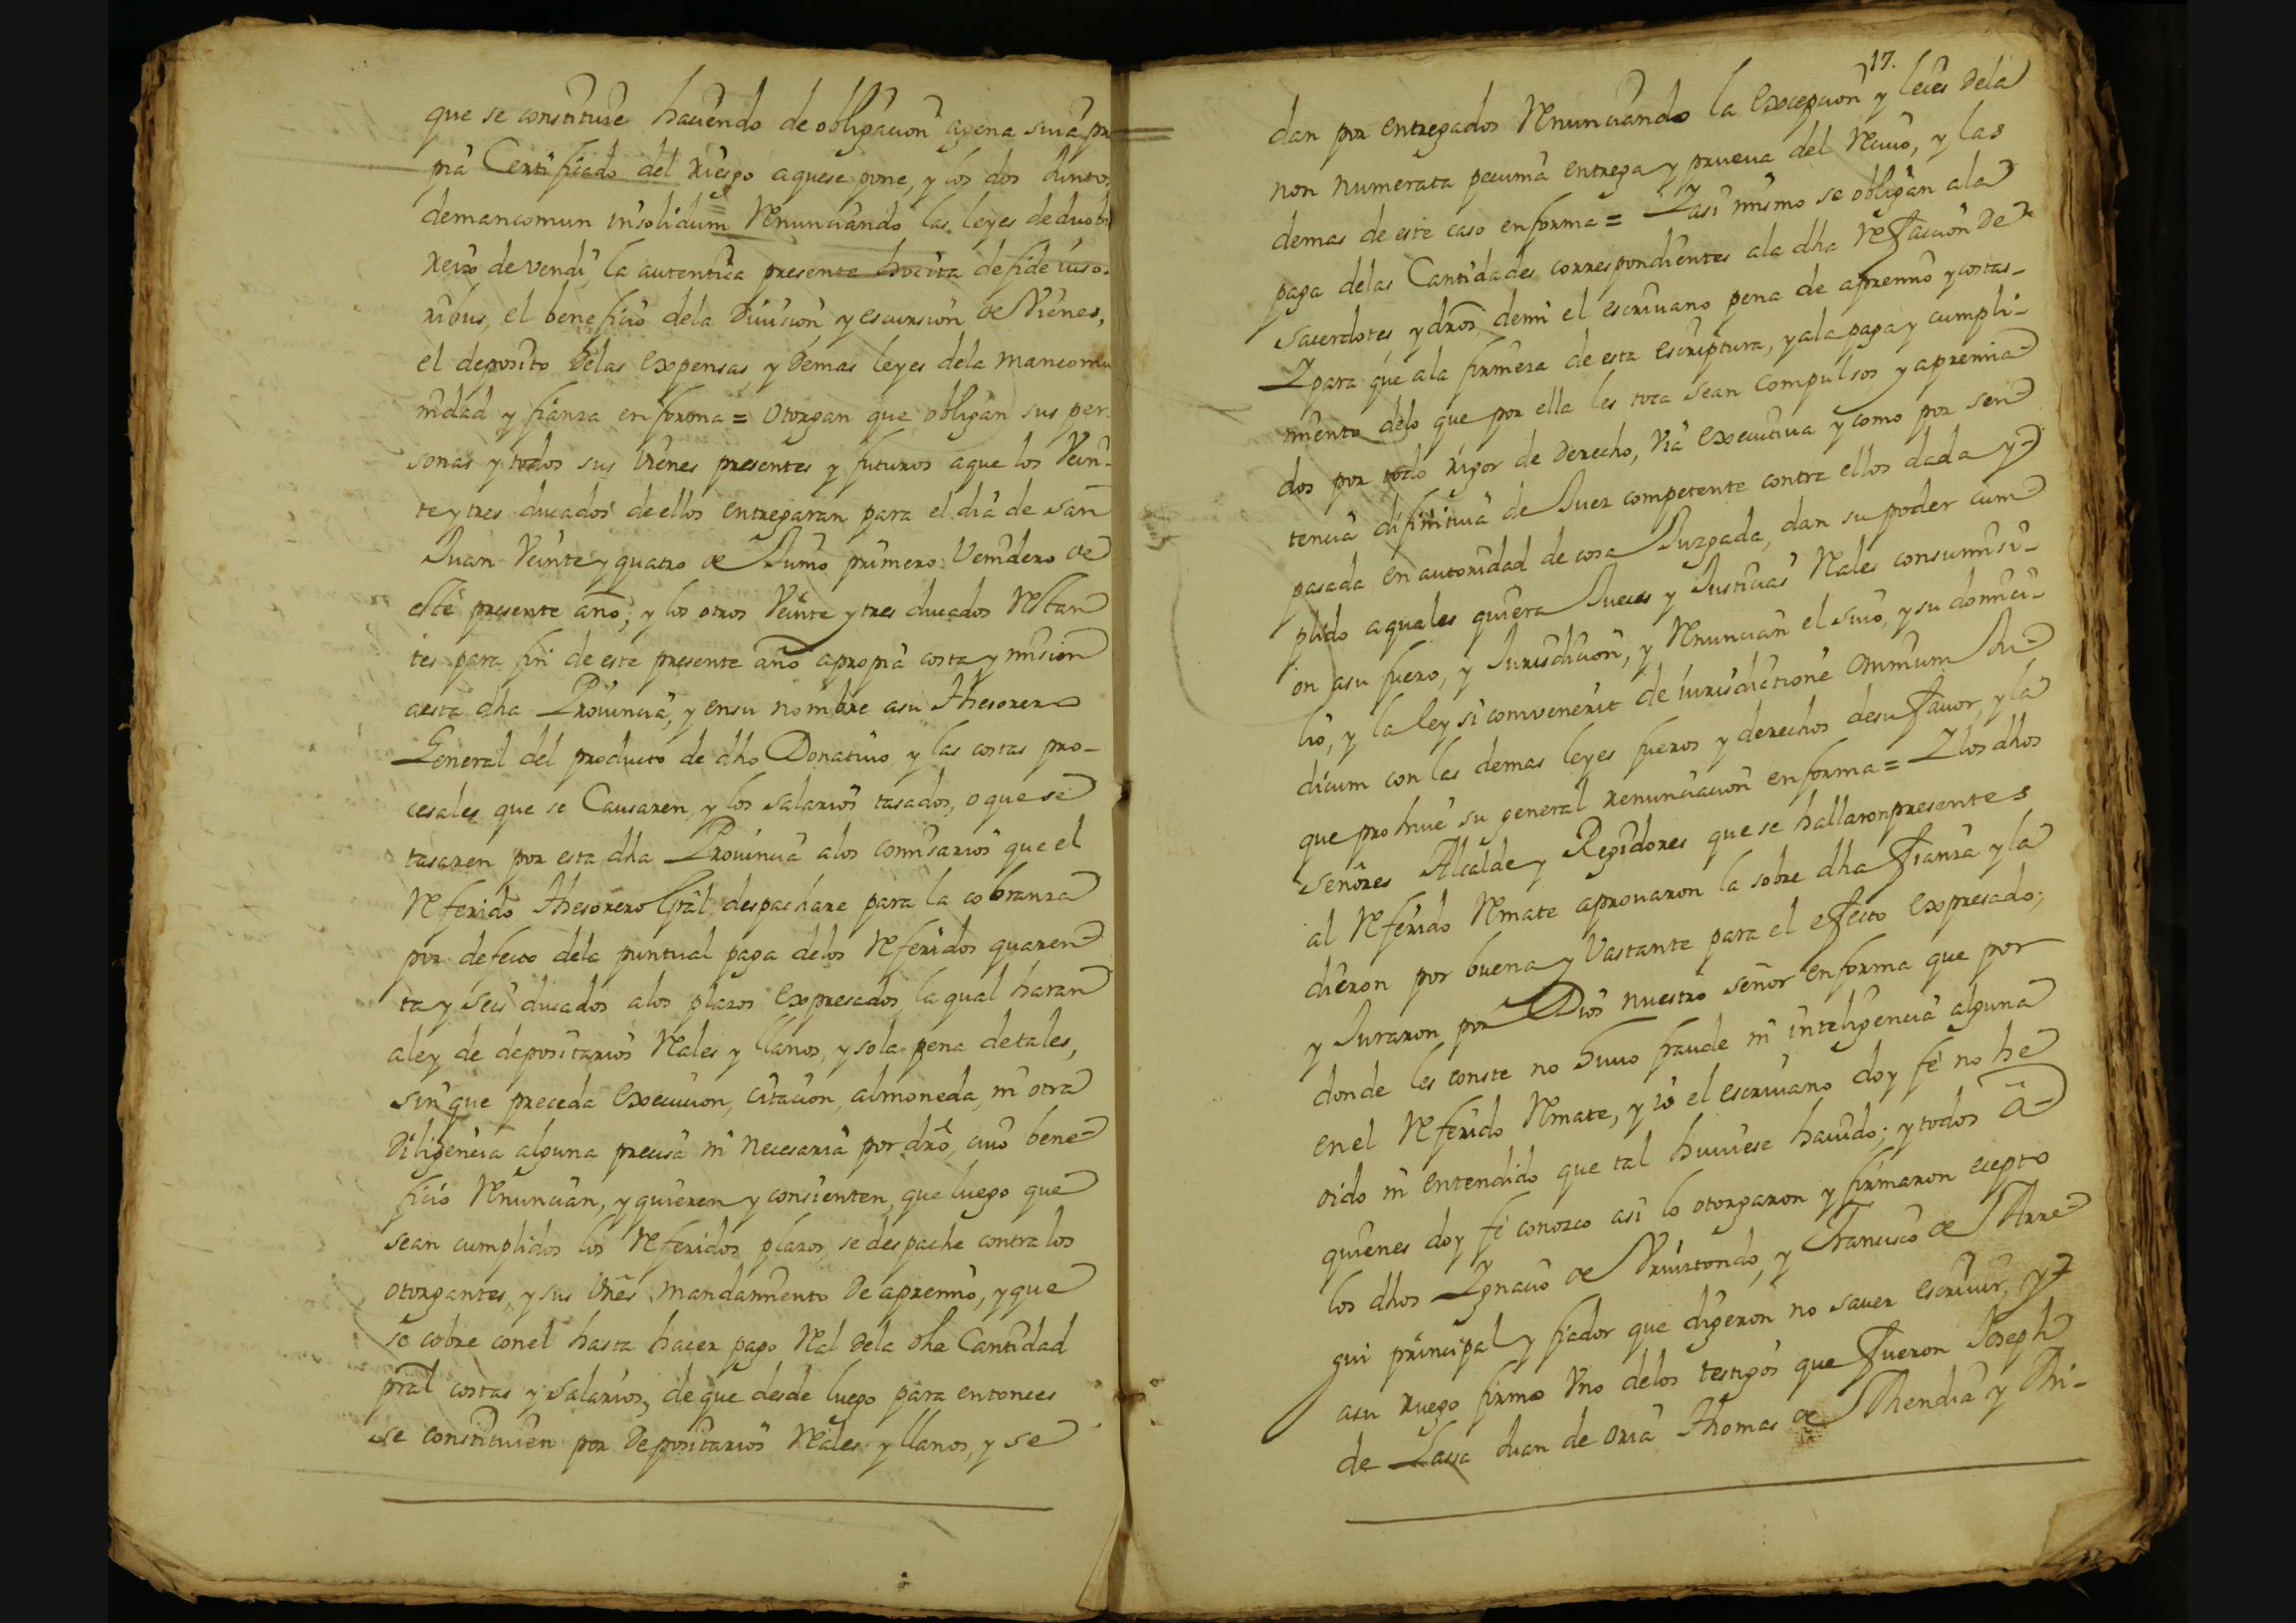 que se constituie haciendo de obligacion agena suia pro
pia Certificado del riesgo aquese pone, y los dos Juntos
demancomun insolidum Renunciando las leyes deduobus
Reix devendi, la autentica presente hocita defideiuso-
ribus, el beneficio dela Diuision, y escursion de Vienes,
el deposito delas expensas, y demas leyes dela mancomu
nidad y fianza en forma = otorgan que obligan sus per-
sonas y todos sus vienes presentes y futuros aque los Vein-
te y tres ducados de ellos entregaran para el dia de san
Juan Veinte y quatro de Junio primero Venidero de
este presente año; y los otros Veinte y tres ducados Restan
tes para fin de este presente año apropia costa y mision
aesta dha Prouincia, y ensu nombre asu Thesorero
General del producto de dho Donatiuo y las costas pro-
cesales que se Causaren, y los salarios tasados, o que se
tasaren por esta dha Prouincia alos comisarios que el
Referido Thesorero Gral despachare para la cobranza
por defecto dela puntual paga delos Referidos quaren
ta y seis ducados alos plazos expresados, la qual haran
aley de depositarios Reales y llanos, y sola pena detales,
sin que preceda execucion, citacion, almoneda, ni otra
Diligencia alguna precisa ni Necesaria por dro, cuio bene
ficio Renuncian, y quieren y consienten, que luego que
sean cumplidos los Referidos plazos, se despache contra los
otorgantes, y sus vnes mandamiento de apremio, y que
se cobre conel hasta hacer pago Real dela dha Cantidad
pral costas y salarios, de que desde luego para entonces
se constituien por Depositarios Reales y llanos, y se
17.
dan por entregados Renunciando la excepcion y leies dela
non numerata pecunia entrega y prueua del Reciuo, y las
demas de este caso en forma = Y asi mismo se obligan ala
paga delas Cantidades correspondientes ala dha Refaccion de
sacerdotes, y dros demi el escriuano pena de apremio y costas-
Y para que ala firmeza de esta escriptura, y ala paga y cumpli-
miento delo que por ella les toca sean compulsos y apremia
dos por todo rigor de Derecho, Via executiua y como por sen
tencia difinitiua de Juez competente contra ellos dada y
pasada en autoridad de cosa Juzgada, dan su poder cum
plido aquales quiera Jueces y Justicias Reales consumisi-
on asu fuero, y Jurisdicion, y Renuncian el suio, y su domici-
lio, y la ley si convenerit de iurisdictione omnium Ju
dicum con las demas leyes fueros y derechos desu fauor, y la
que prohiue su general renunciacion en forma = Y los dhos
señores Alcalde y Regidores que se hallaron presentes
al Referido Remate aprouaron la sobre dha fianza y la
dieron por buena y Vastante para el efecto expresado;
y Juraron por Dios nuestro señor en forma que por
donde les conste no huuo fraude ni inteligencia alguna
en el Referido Remate, y io el escriuano doy fe no he
oido ni entendido que tal huuiese hauido; y todos a
quienes doy fe conozco asi lo otorgaron y firmaron ecepto
los dhos Ygnacio de Vruiztondo, y Francisco de Arre
gui principal y fiador que digeron no sauer escriuir, y
asu ruego firmo Vno delos testigos que fueron Joseph
de Lassa Juan de oria Thomas de Rhendia y Phi-